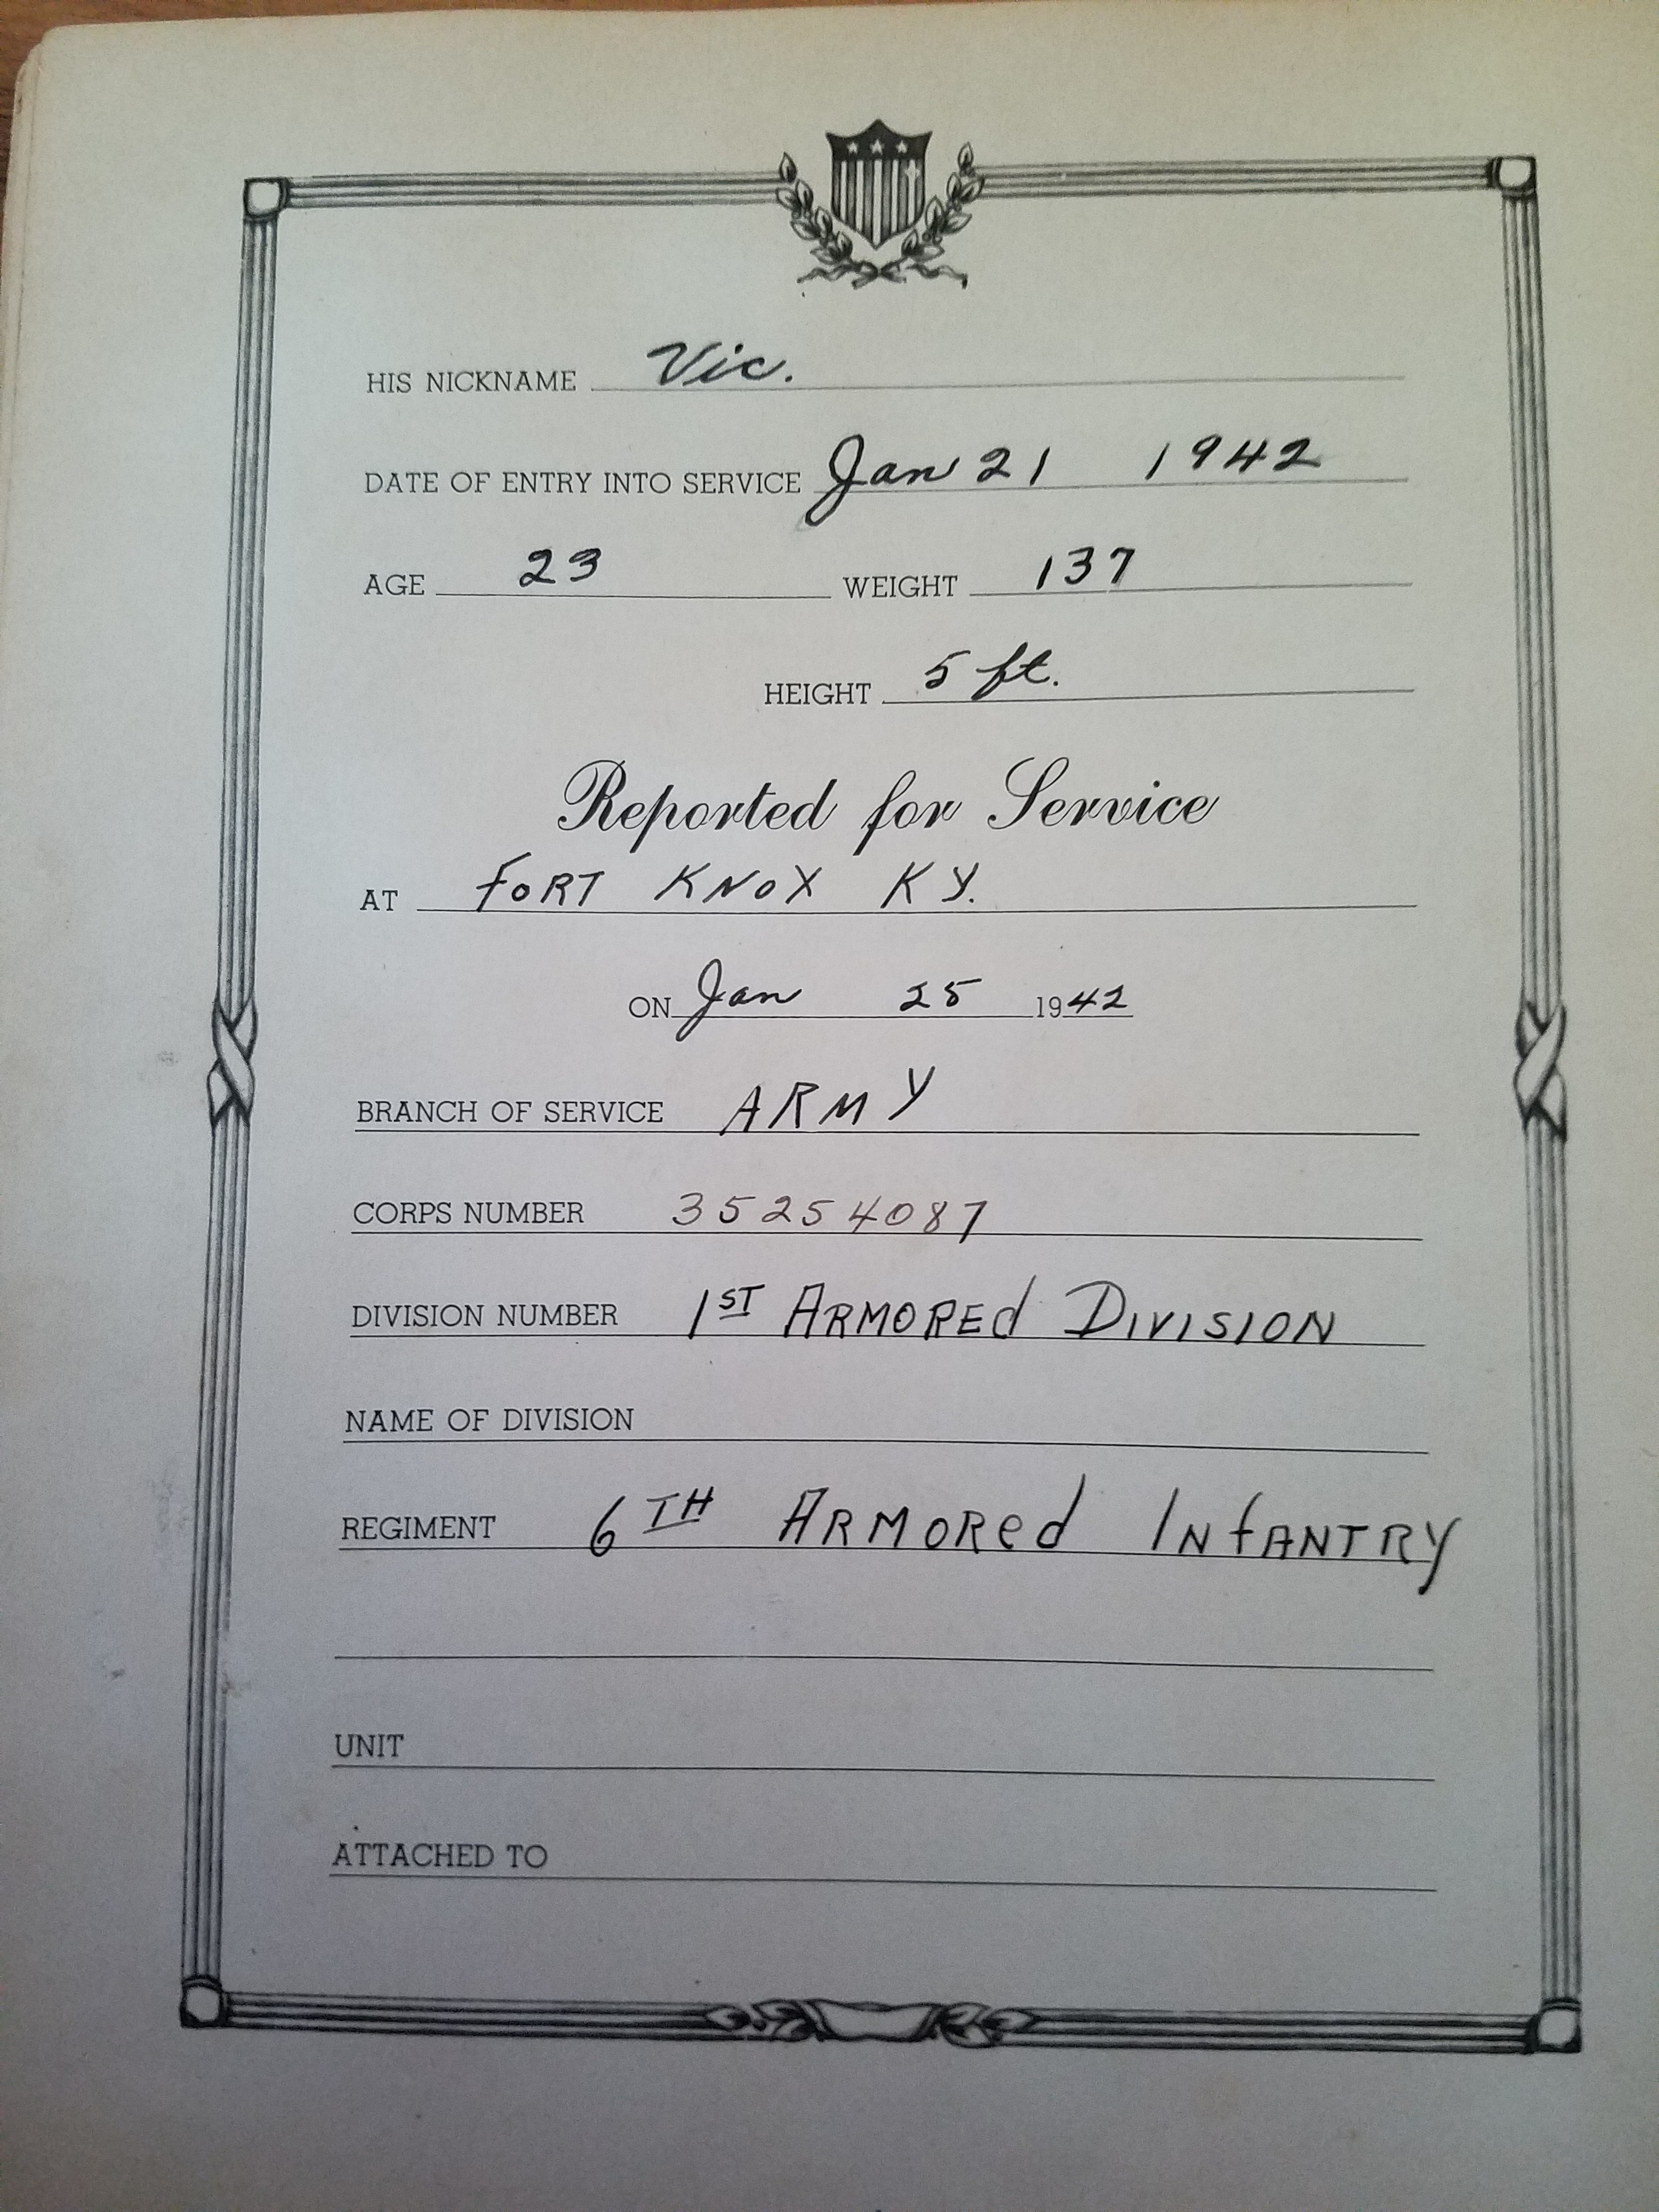 HIS NICKNAME Vic.
DATE OF ENTRY INTO SERVICE Jan 21 1942
AGE 23 WEIGHT 137
HEIGHT 5 ft.
Reported for Service
AT FORT KNOX KY.
ON Jan 25 1942
BRANCH OF SERVICE ARMY
CORPS NUMBER 35254087
DIVISION NUMBER 1ST ARMOREd DIVISION
NAME OF DIVISION
REGIMENT 6TH ARMORed INfANTRY
UNIT
ATTACHED TO